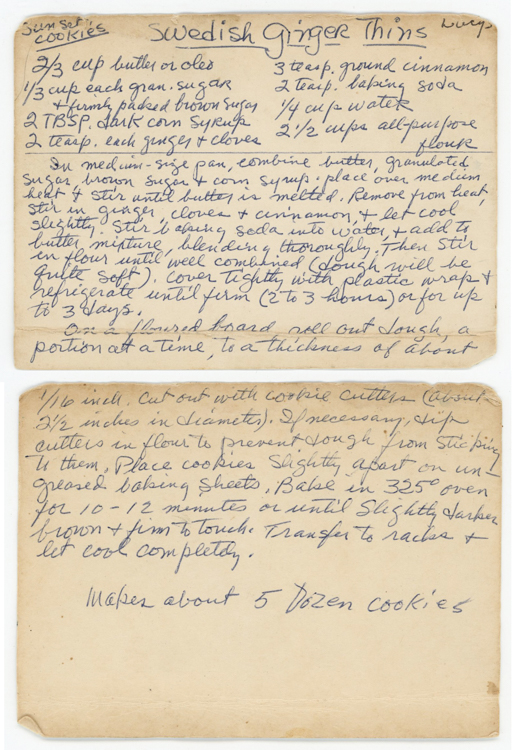 Sunset
Cookies
Swedish Ginger Thins
Lucy
2/3 cup butter or oleo
1/3 cup each gran. sugar
& firmly packed brown sugar
2 TBSP. dark corn syrup
2 teasp. each ginger & cloves
3 teasp. ground cinnamon
2 teasp. baking soda
1/4 cup water
2 1/2 cups all-purpose
flour
In medium-size pan, combine butter, granulated
sugar, brown sugar & corn syrup. place over medium
heat & stir until butter is melted. Remove from heat,
stir in ginger, cloves & cinnamon, & let cool
slightly. Stir baking soda into water, & add to
butter mixture, blending thoroughly. Then stir
in flour until well combined (dough will be
quite soft). Cover tightly with plastic wrap &
refrigerate until firm (2 to 3 hours) or for up
to 3 days.
On a floured board roll out dough, a
portion at a time, to a thickness of about
1/16 inch. Cut out with cookie cutters (about
2 1/2 inches in diameter). If necessary, dip
cutters in flour to prevent dough from sticking
to them. Place cookies slightly apart on un-
greased baking sheets. Bake in 325° oven
for 10-12 minutes or until slightly darker
brown & firm to touch. Transfer to racks &
let cool completely.
Makes about 5 Dozen cookies